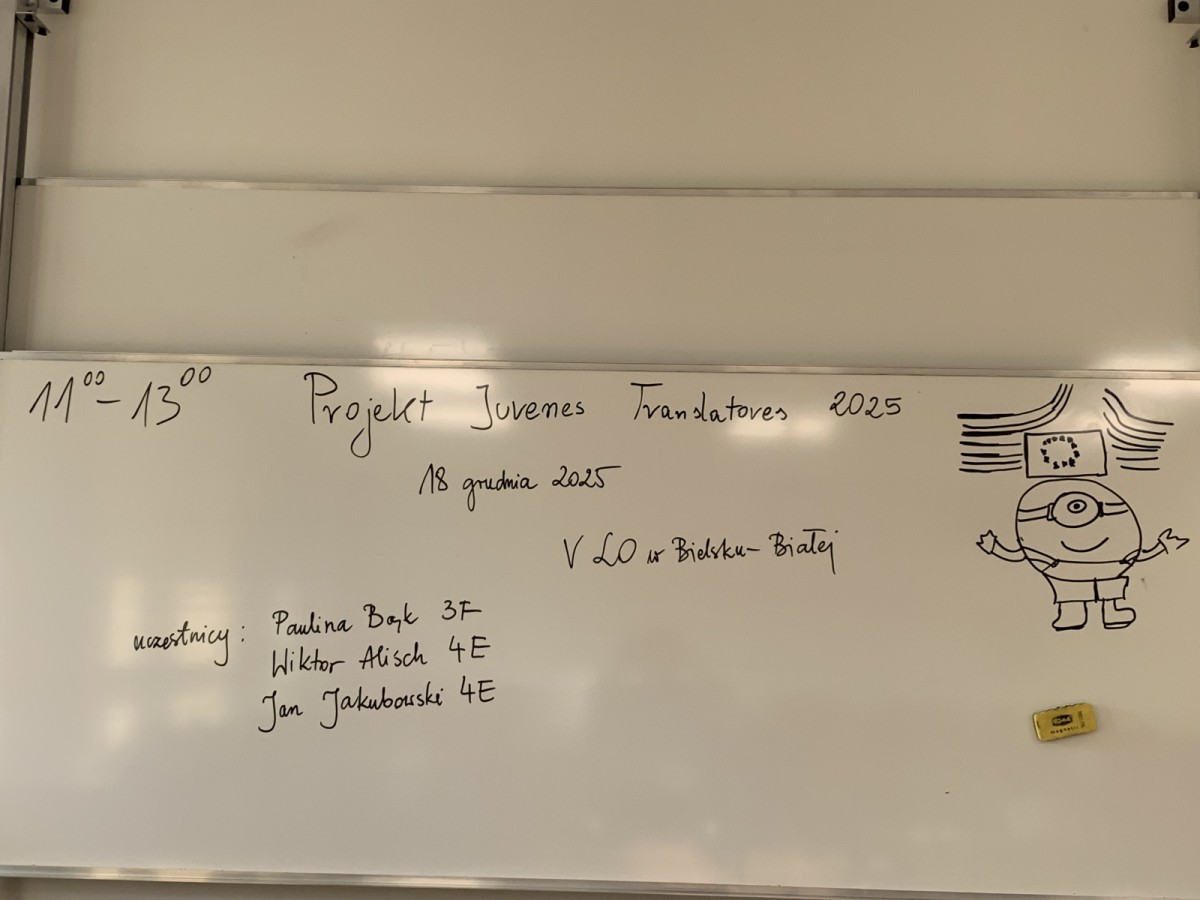 11⁰⁰ - 13⁰⁰ Projekt Juvenes Translatores 2025
18 grudnia 2025
V LO w Bielsku-Białej
uczestnicy: Paulina Bąk 3F
Wiktor Alisch 4E
Jan Jakubowski 4E
magnetic